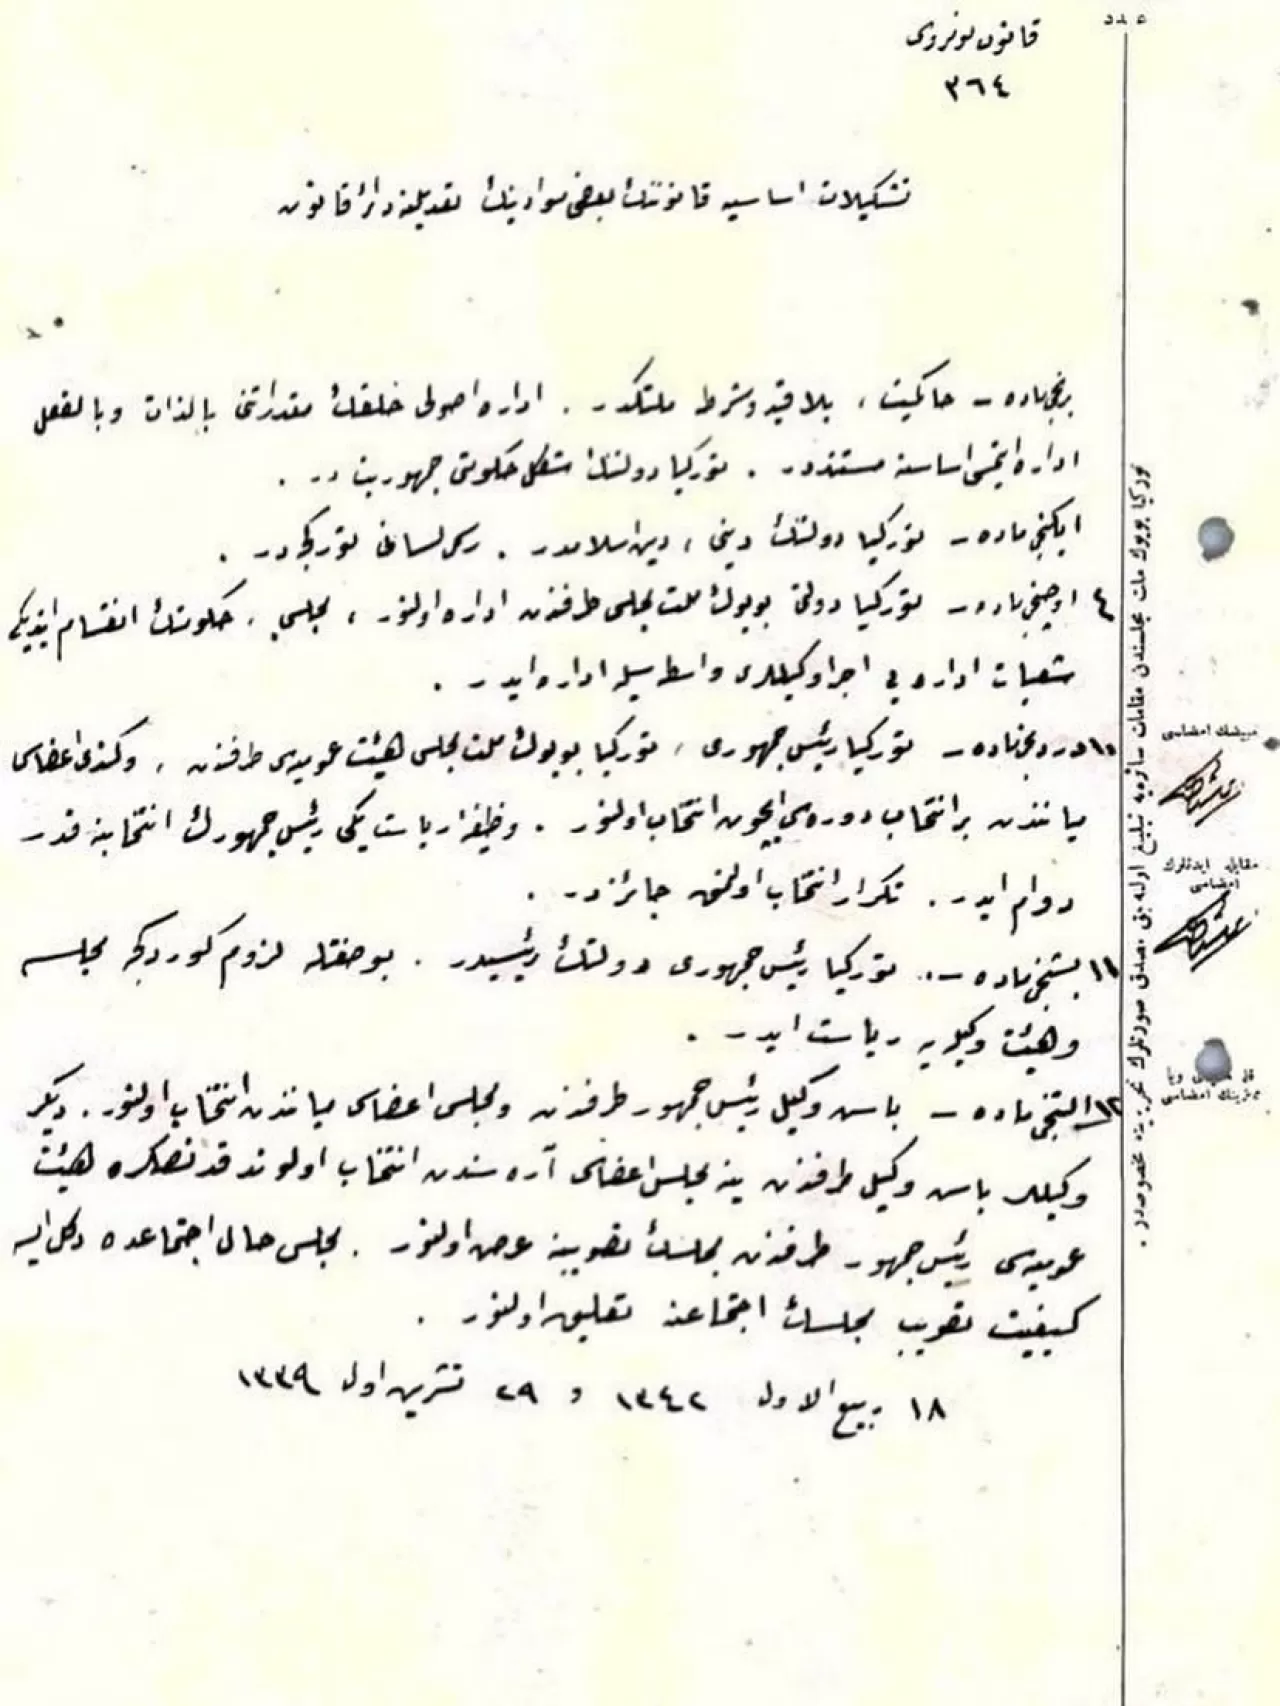 عدد
قانون نومروسى
٣٦٤
تشكيلات اساسيه قانوننك بعض موادينك تعديلنه دائر قانون
برنجى ماده – حاكميت ، بلا قيد و شرط ملتكدر . اداره اصولى خلقك مقدراتنى بالذات و بالفعل
اداره ايتمسى اساسنه مستنددر . توركيا دولتنك شكل حكومتى جمهوريت در .
ايكنجى ماده – توركيا دولتنك دينى ، دين اسلامدر . رسمى لسانى توركجه در .
٤ اوچنجى ماده – توركيا دولتى بويوك ملت مجلسى طرفندن اداره اولنور ، مجلس ، حكومتك انقسام ايتديكى
شعبات اداره يى اجرا وكيللرى واسطه سيله اداره ايدر .
١٠ دردنجى ماده – توركيا رئيس جمهورى ، توركيا بويوك ملت مجلسى هيئت عموميه سى طرفندن ، و كندى اعضاسى
مياننده ن بر انتخاب دوره سى ايچون انتخاب اولنور . وظيفه ٔ رياست يكى رئيس جمهورك انتخابنه قدر
دوام ايدر . تكرار انتخاب اولنمق جائزدر .
١١ بشنجى ماده – توركيا رئيس جمهورى دولتك رئيسيدر . بو صفتله لزوم كوردكجه مجلسه
و هيئت وكيله يه رياست ايدر .
١٢ التنجى ماده – باش وكيل رئيس جمهور طرفندن و مجلس اعضاسى مياننده ن انتخاب اولنور . ديكر
وكيللر باش وكيل طرفندن ينه مجلس اعضاسى آره سندن انتخاب اولوندقدنصكره هيئت
عموميه سى رئيس جمهور طرفندن مجلسك تصويبنه عرض اولنور . مجلس حال اجتماعده دكل ايسه
كيفيت تصويب مجلسك اجتماعنه تعليق اولنور .
١٨ ربيع الاول ١٣٤٢ و ٢٩ تشرين اول ١٣٣٩
توركيا بويوك ملت مجلسندن مقامات سائره يه تبليغ اوله جق مصدق صورتلرك تحريرينه مخصوصدر .
مبيضك امضاسى
مقابله ايدنلرك
امضاسى
مميزينك امضاسى